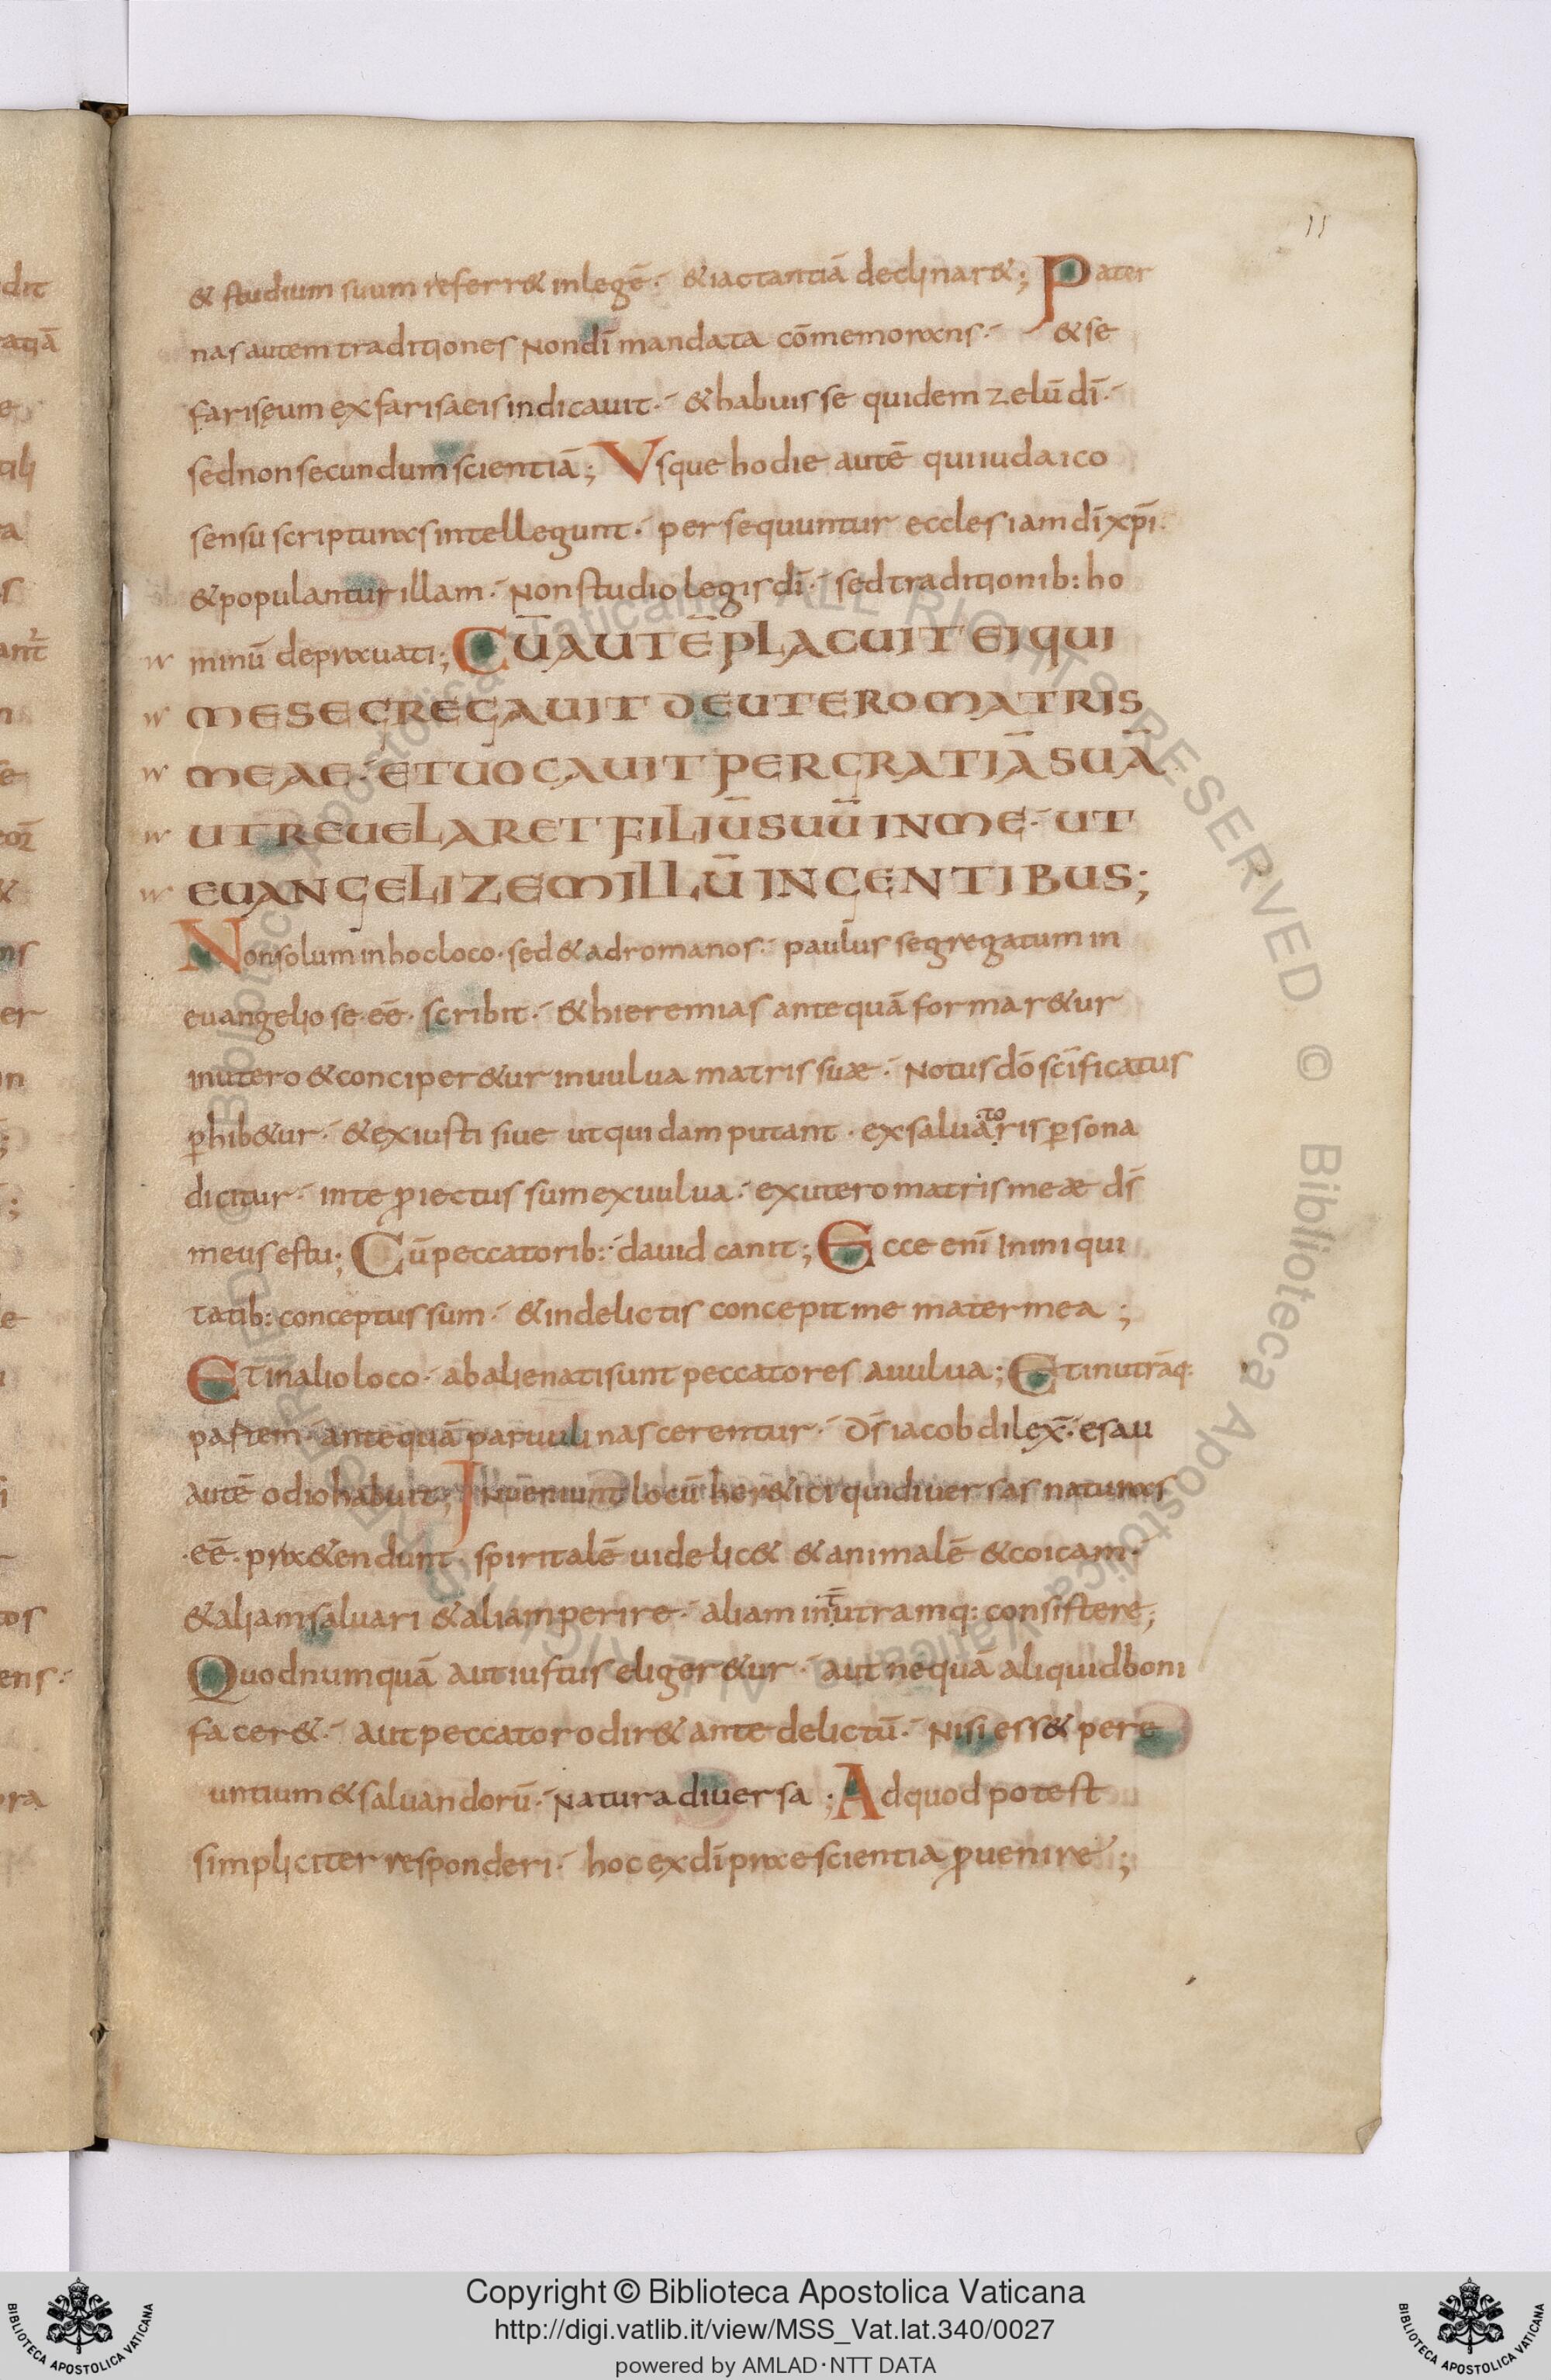 11
& studium suum referr& inlegē· &iactantiā declinar&; Pater
nas autem traditiones Non dī mandata cōmemorans· & se
fariseum ex farisaeis indicauit· & habuisse quidem zelū dī·
sed non secundum scientiā; Vsque hodie autē qui iudaico
sensu scripturas intellegunt· persequuntur ecclesiam dī xp̄i·
& populantur illam· Non studio legis dī· sed traditionib: ho
minū deprauati; CŪ AUTĒ PLACUIT EI QUI
ME SEGREGAUIT DE UTERO MATRIS
MEAE· ET UOCAUIT PER GRATIĀ SUĀ·
UT REUELARET FILIŪ SUŪ IN ME· UT
EUANGELIZEM ILLŪ IN GENTIBUS;
Non solum in hoc loco· sed & ad romanos· paulus segregatum in
euangelio se ēē· scribit· & hieremias antequā formar&ur
in utero & conciper&ur in uulua matris suae· Notus dō sc̄ificatus
p̄hib&ur· & ex iusti siue ut quidam putant· ex saluatoris p̄sona
dicitur· in te p̄iectus sum ex uulua· ex utero matris meae ds̄
meus es tu; Cū peccatorib:· dauid canit; Ecce enī In iniqui
tatib: conceptus sum· & in delictis concepit me mater mea;
Et in alio loco· abalienati sunt peccatores a uulua; Et in utrāq:
partem· antequā paruuli nascerentur· Ds̄ iacob dilex̄· esau
autē odio habuit; Inueniunt locū her&ici qui diuersas naturas
·ēē· pra&endunt· spiritalē uidelic& & animalē & coicam·
& aliam saluari & aliam perire· aliam int̄ utramq: consistere;
Quod numquā aut iustus eliger&ur· aut nequā aliquid boni
facer&· aut peccator odir& ante delictū· Nisi ess& pere
untium & saluandorū· Natura diuersa; Ad quod potest
simpliciter responderi· hoc ex dī praescientia p̄uenire;
dit
atiā
e
tili
ra
s
ant̄
n
se
&
ns
er
in
;
;
le
i
tos
ens·
ora
© Biblioteca Apostolica Vaticana ALL RIGHTS RESERVED © Biblioteca Apostolica Vaticana ALL RIGHTS RESERVED
Copyright © Biblioteca Apostolica Vaticana
http://digi.vatlib.it/view/MSS_Vat.lat.340/0027
powered by AMLAD·NTT DATA
BIBLIOTECA APOSTOLICA VATICANA
BIBLIOTECA APOSTOLICA VATICANA